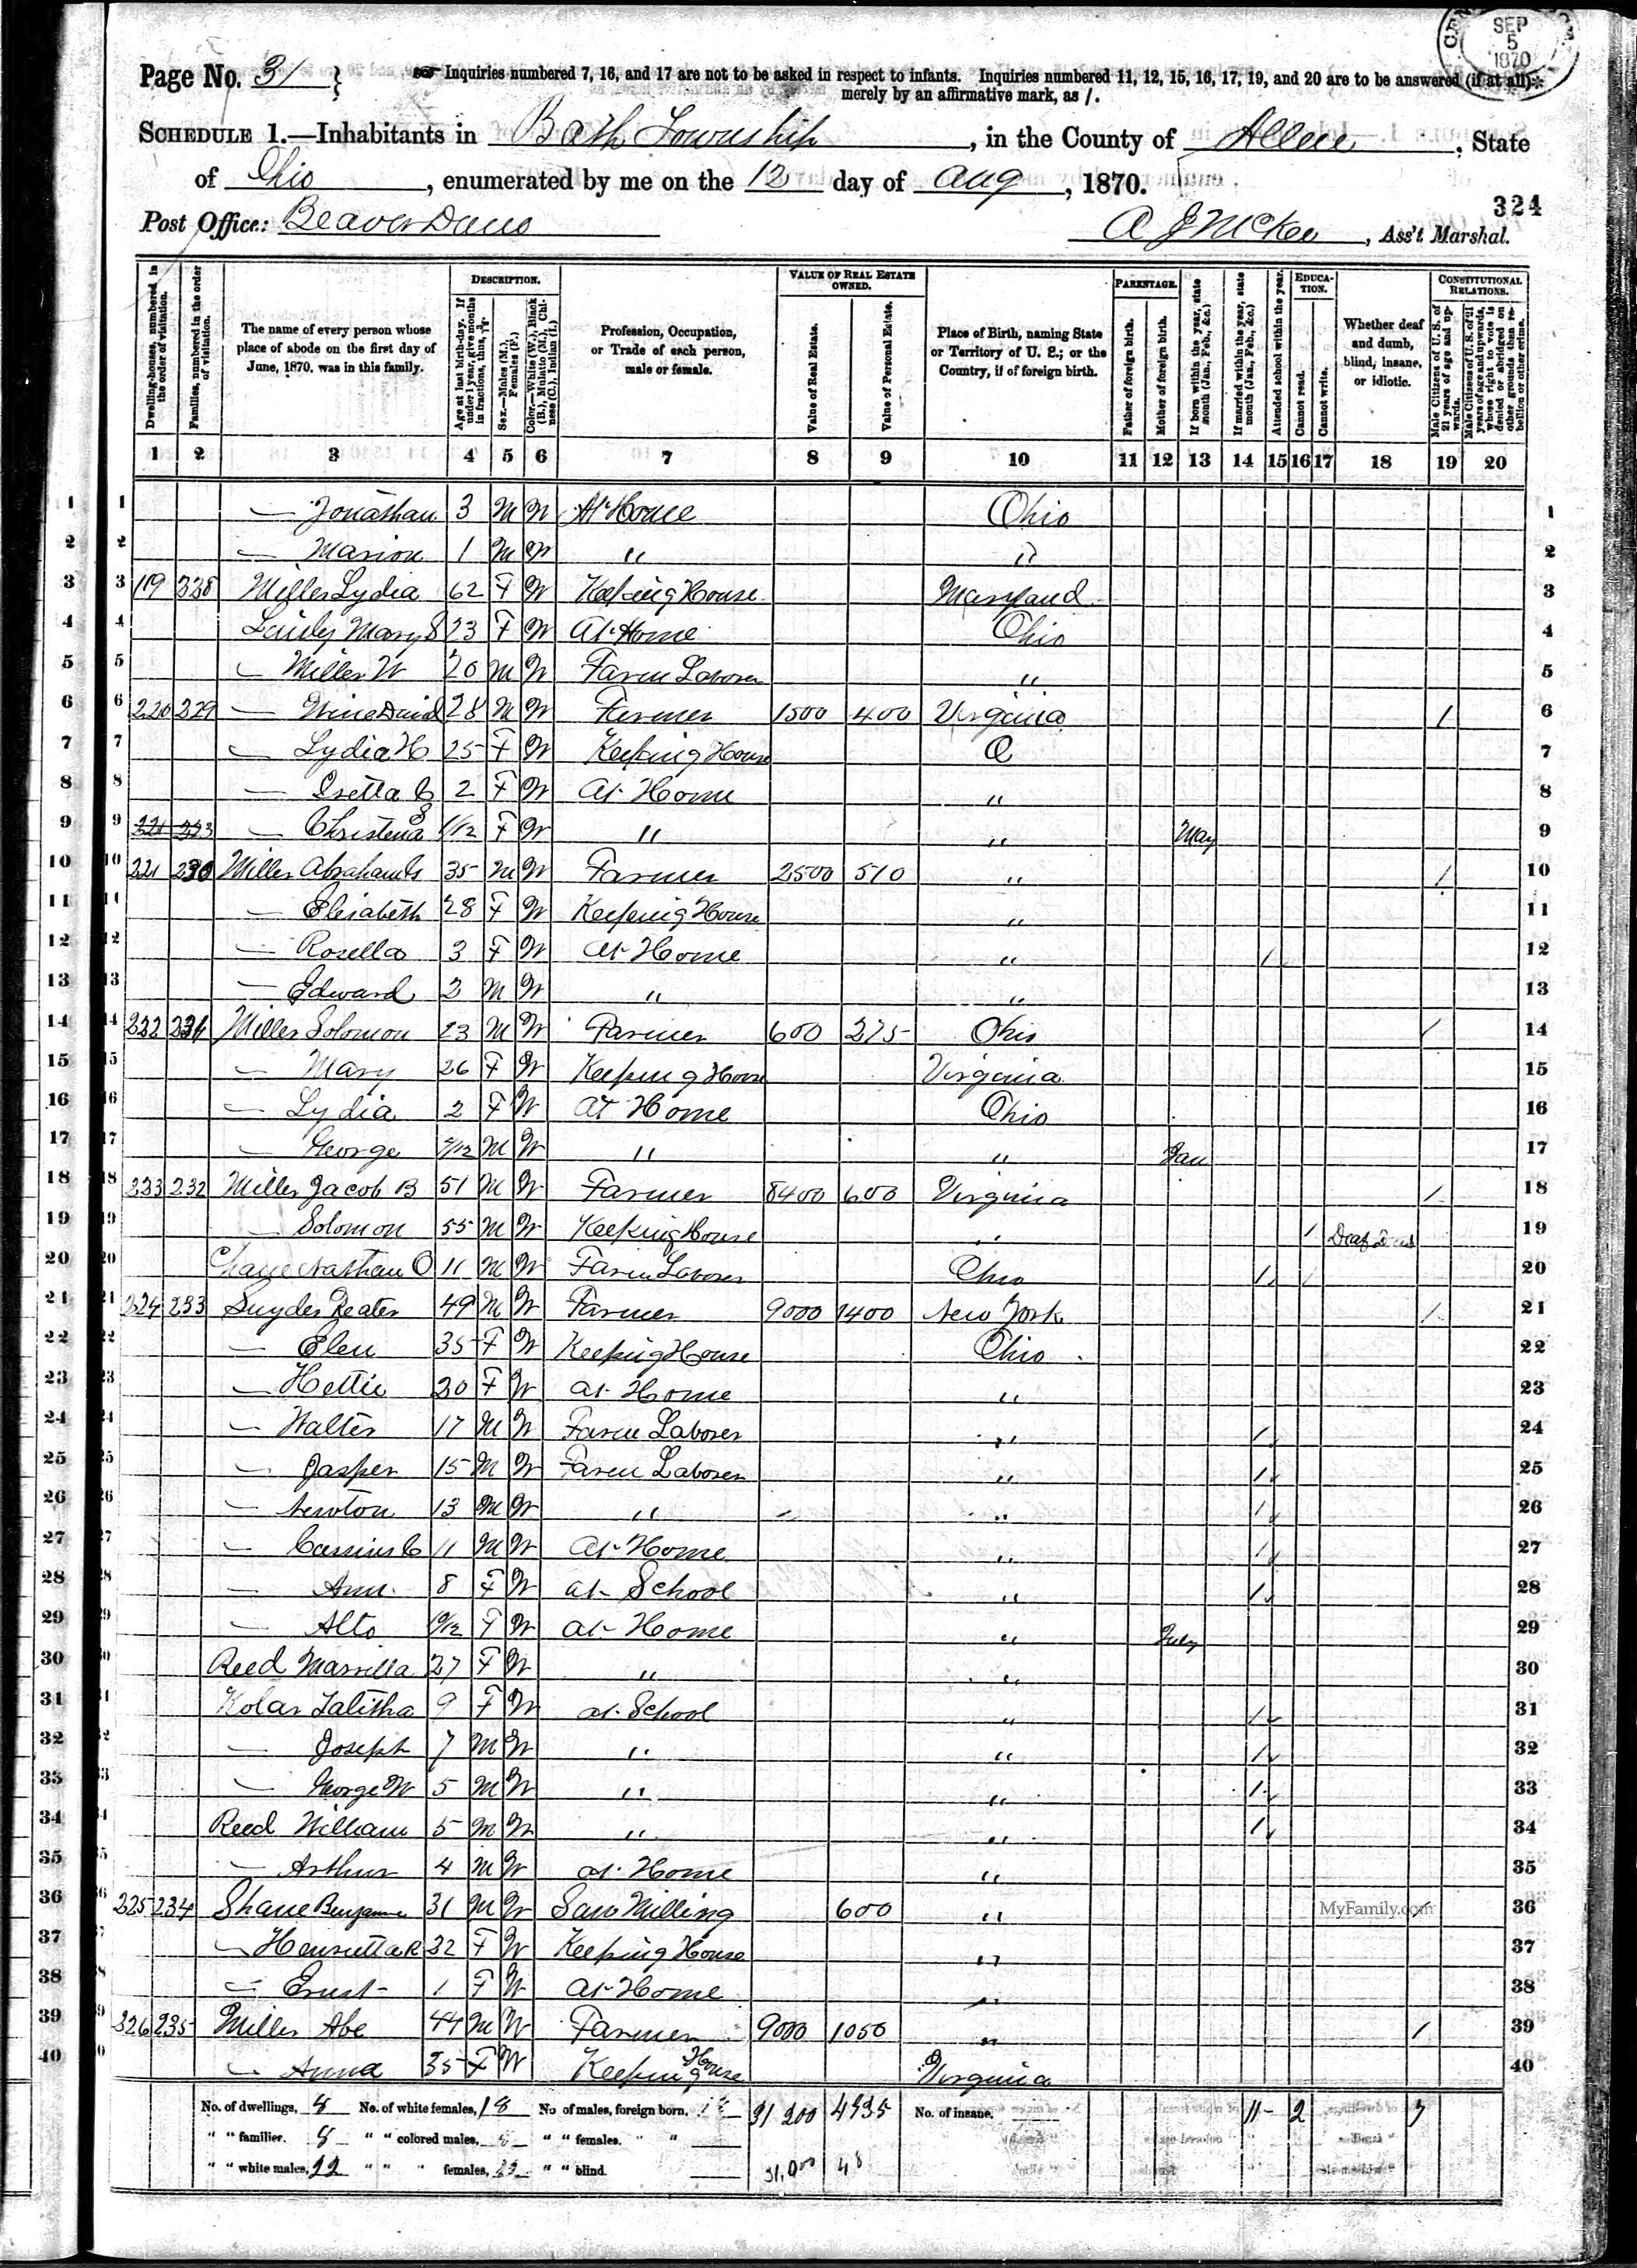 CEN
SEP
5
1870
Page No. 31 } Inquiries numbered 7, 16, and 17 are not to be asked in respect to infants. Inquiries numbered 11, 12, 15, 16, 17, 19, and 20 are to be answered (if at all)
merely by an affirmative mark, as /.
SCHEDULE 1.—Inhabitants in Bath Township, in the County of Allen, State
of Ohio, enumerated by me on the 12 day of Aug, 1870.
324
Post Office: Beaver Dam A J McKee, Ass't Marshal.
Dwelling-houses, numbered in the order of visitation.
Families, numbered in the order of visitation.
The name of every person whose place of abode on the first day of June, 1870, was in this family.
DESCRIPTION.
Age at last birth-day. If under 1 year, give months in fractions, thus, 3/12.
Sex.—Males (M.), Females (F.)
Color.—White (W.), Black (B.), Mulatto (M.), Chinese (C.), Indian (I.)
Profession, Occupation, or Trade of each person, male or female.
VALUE OF REAL ESTATE OWNED.
Value of Real Estate.
Value of Personal Estate.
Place of Birth, naming State or Territory of U. S.; or the Country, if of foreign birth.
PARENTAGE.
Father of foreign birth.
Mother of foreign birth.
If born within the year, state month (Jan., Feb., &c.)
If married within the year, state month (Jan., Feb., &c.)
Attended school within the year.
EDUCATION.
Cannot read.
Cannot write.
Whether deaf and dumb, blind, insane, or idiotic.
CONSTITUTIONAL RELATIONS.
Male Citizens of U. S. of 21 years of age and upwards.
Male Citizens of U. S. of 21 years of age and upwards, whose right to vote is denied or abridged on other grounds than rebellion or other crime.
1 2 3 4 5 6 7 8 9 10 11 12 13 14 15 16 17 18 19 20
1 1 — Jonathan 3 M W At Home Ohio 1
2 2 — Marion 1 M W " " 2
3 3 119 338 Miller Lydia 62 F W Keeping House Maryland 3
4 4 Mary S 23 F W At Home Ohio 4
5 5 — Miller W 20 M W Farm Laborer " 5
6 6 220 229 — Wine David 28 M W Farmer 1500 400 Virginia 1 6
7 7 — Lydia H 25 F W Keeping House O 7
8 8 — Isetta C 2 F W At Home " 8
9 9 221 223 — Christena S 1/12 F W " " May 9
10 10 221 230 Miller Abraham 35 M W Farmer 2500 510 " / 10
11 11 — Elisabeth 28 F W Keeping House " 11
12 12 — Rosella 3 F W At Home " / 12
13 13 — Edward 2 M W " " 13
14 14 222 231 Miller Solomon 23 M W Farmer 600 275 Ohio / 14
15 15 — Mary 26 F W Keeping House Virginia 15
16 16 — Lydia 2 F W At Home Ohio 16
17 17 — George /12 M W " " Jan 17
18 18 223 232 Miller Jacob B 51 M W Farmer 8400 600 Virginia / 18
19 19 — Solomon 55 M W Keeping House " / Deaf 19
20 20 Nathan O 11 M W Farm Laborer Ohio / / 20
21 21 224 233 Snyder Peater 49 M W Farmer 9000 1400 New York / 21
22 22 — Elen 35 F W Keeping House Ohio 22
23 23 — Hettie 20 F W At Home " 23
24 24 — Walter 17 M W Farm Laborer " / 24
25 25 — Jasper 15 M W Farm Laborer " / 25
26 26 — Newton 13 M W " " / 26
27 27 — Cassius C 11 M W At Home " / 27
28 28 — Ann 8 F W At School " / 28
29 29 — Alto 10/12 F W At Home " July 29
30 30 Reed Marsilla 27 F W " " 30
31 31 Kolar Talitha 9 F W At School " / 31
32 32 — Joseph 7 M W " " / 32
33 33 — George W 5 M W " " / 33
34 34 Reed William 5 M W " " / 34
35 35 — Arthur 4 M W At Home " 35
36 36 225 234 Shane Benjamin 31 M W Saw Milling 600 " / 36
MyFamily.com
37 37 — Henrietta R 32 F W Keeping House " 37
38 38 — Ernst 1 F W At Home " 38
39 39 226 235 Miller Abe 44 M W Farmer 9000 1050 " / 39
40 40 — Anna 35 F W Keeping House Virginia 40
No. of dwellings, 8 No. of white females, 18 No of males, foreign born, 31 200 4835 No. of insane. 11 2 7
" " families. 8 " " colored males, " " females. " "
" " white males, 22 " " " females, " " blind. 31,000 48